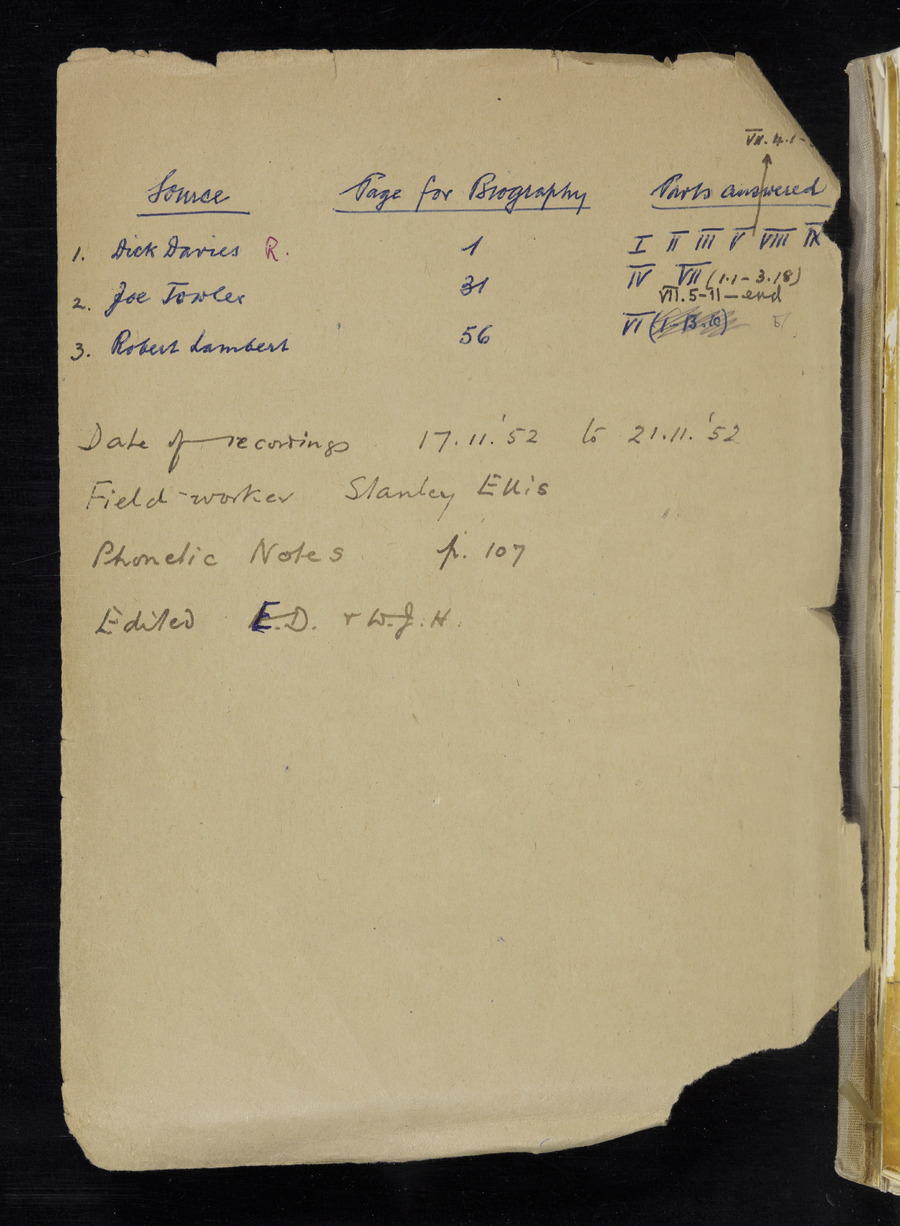 VII.4.1-
Source Page for Biography Parts answered
1. Dick Davies R. 1 I II III V VIII IX
2. Joe Towler 31 IV VII (1.1-3.18)
VII.5-11-end
3. Robert Lambert 56 VI
Date of recordings 17.11.'52 to 21.11.'52
Field-worker Stanley Ellis
Phonetic Notes p. 107
Edited E.D. + W.J.H.